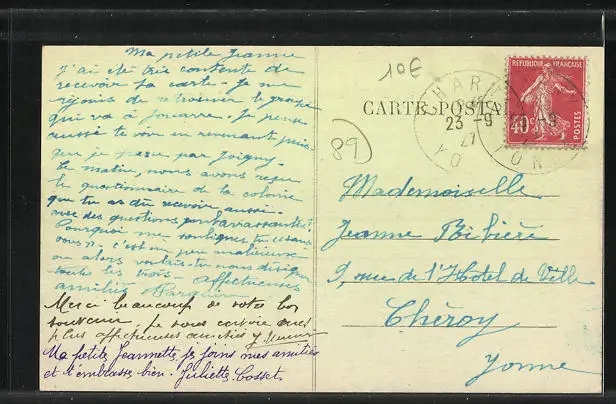 Ma petite Jeanne
J'ai été très contente de
recevoir ta carte. Je me
réjouis de retrouver le groupe
qui va à Jouarre. Je pense
aussi te voir en revenant puis-
que je passe par Joigny.
Ce matin, nous avons reçu
le questionnaire de la colonie
que tu as dû recevoir aussi.
avec des questions
Pourquoi me soulignes-tu
vous". c'est un peu malicieux
ou alors voulais-tu nous désigner
toutes les trois. affectueuses
amitiés
Merci beaucoup de votre bon
souvenir, je vous envoie mes
plus affectueuses amitiés
Ma petite Jeannette, je joins mes amitiés
et t'embrasse bien. Juliette Cosset.
10€
CARTE POSTA
23 -9
YO
YONN
RÉPUBLIQUE FRANÇAISE
40c
POSTES
89
Mademoiselle
Jeanne Ribière
9, rue de l'Hôtel de Ville
Chéroy
Yonne